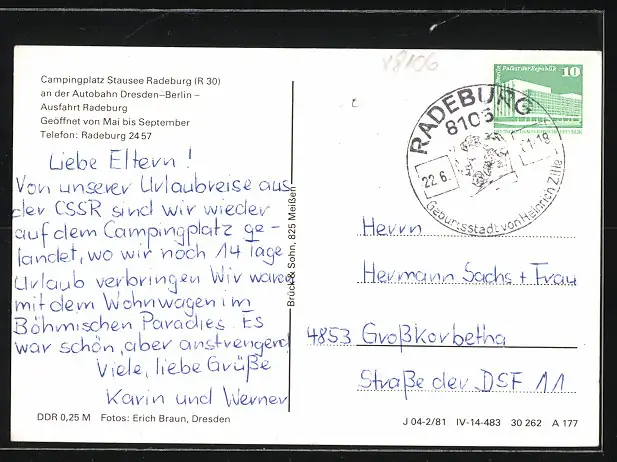 Campingplatz Stausee Radeburg (R 30)
an der Autobahn Dresden–Berlin –
Ausfahrt Radeburg
Geöffnet von Mai bis September
Telefon: Radeburg 24 57
Liebe Eltern!
Von unserer Urlaubreise aus
der CSSR sind wir wieder
auf dem Campingplatz ge-
landet, wo wir noch 14 Tage
Urlaub verbringen Wir waren
mit dem Wohnwagen im
Böhmischen Paradies. Es
war schön, aber anstrengend
Viele, liebe Grüße
Karin und Werner
DDR 0,25 M Fotos: Erich Braun, Dresden
Brück & Sohn, 825 Meißen
v8106
Berlin, Palast der Republik 10
RADEBURG
8106
22.6.
-18
Geburtsstadt von Heinrich Zille
Herrn
Hermann Sachs + Frau
4853 Großkorbetha
Straße der DSF 11
J 04-2/81 IV-14-483 30 262 A 177